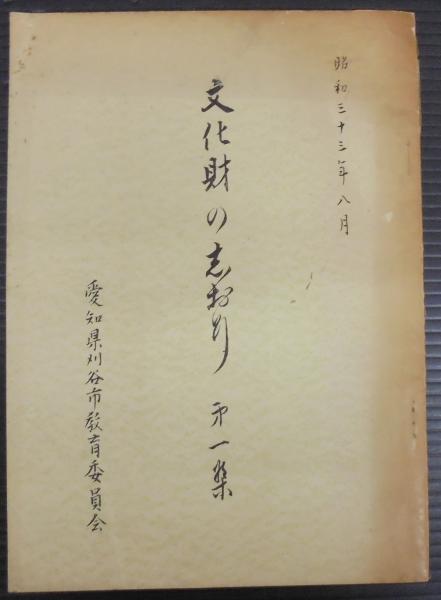 昭和三十三年八月
文化財の志おり 第一集
愛知県刈谷市教育委員会